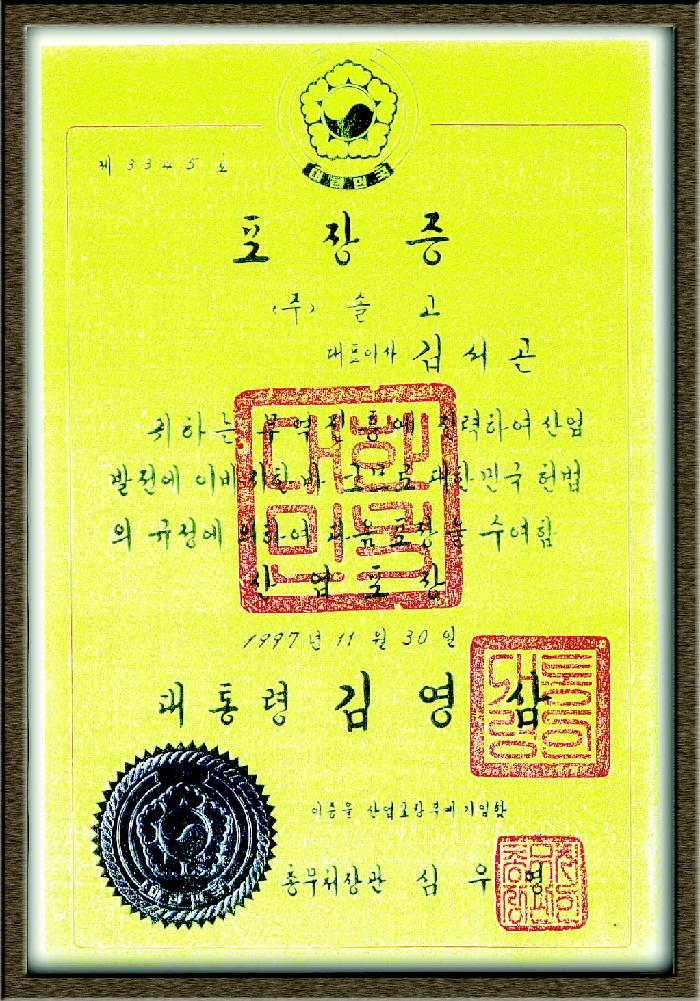 대한민국
제 3345 호
포장증
(주) 솔고
대표이사 김서곤
귀하는 무역진흥에 진력하여 산업
발전에 이바지한바 크므로 대한민국 헌법
의 규정에 의하여 다음 포장을 수여함
산업포장
1997년 11월 30일
대통령 김영삼
이증을 산업포장부에 기입함
총무처장관 심우영
대한민국